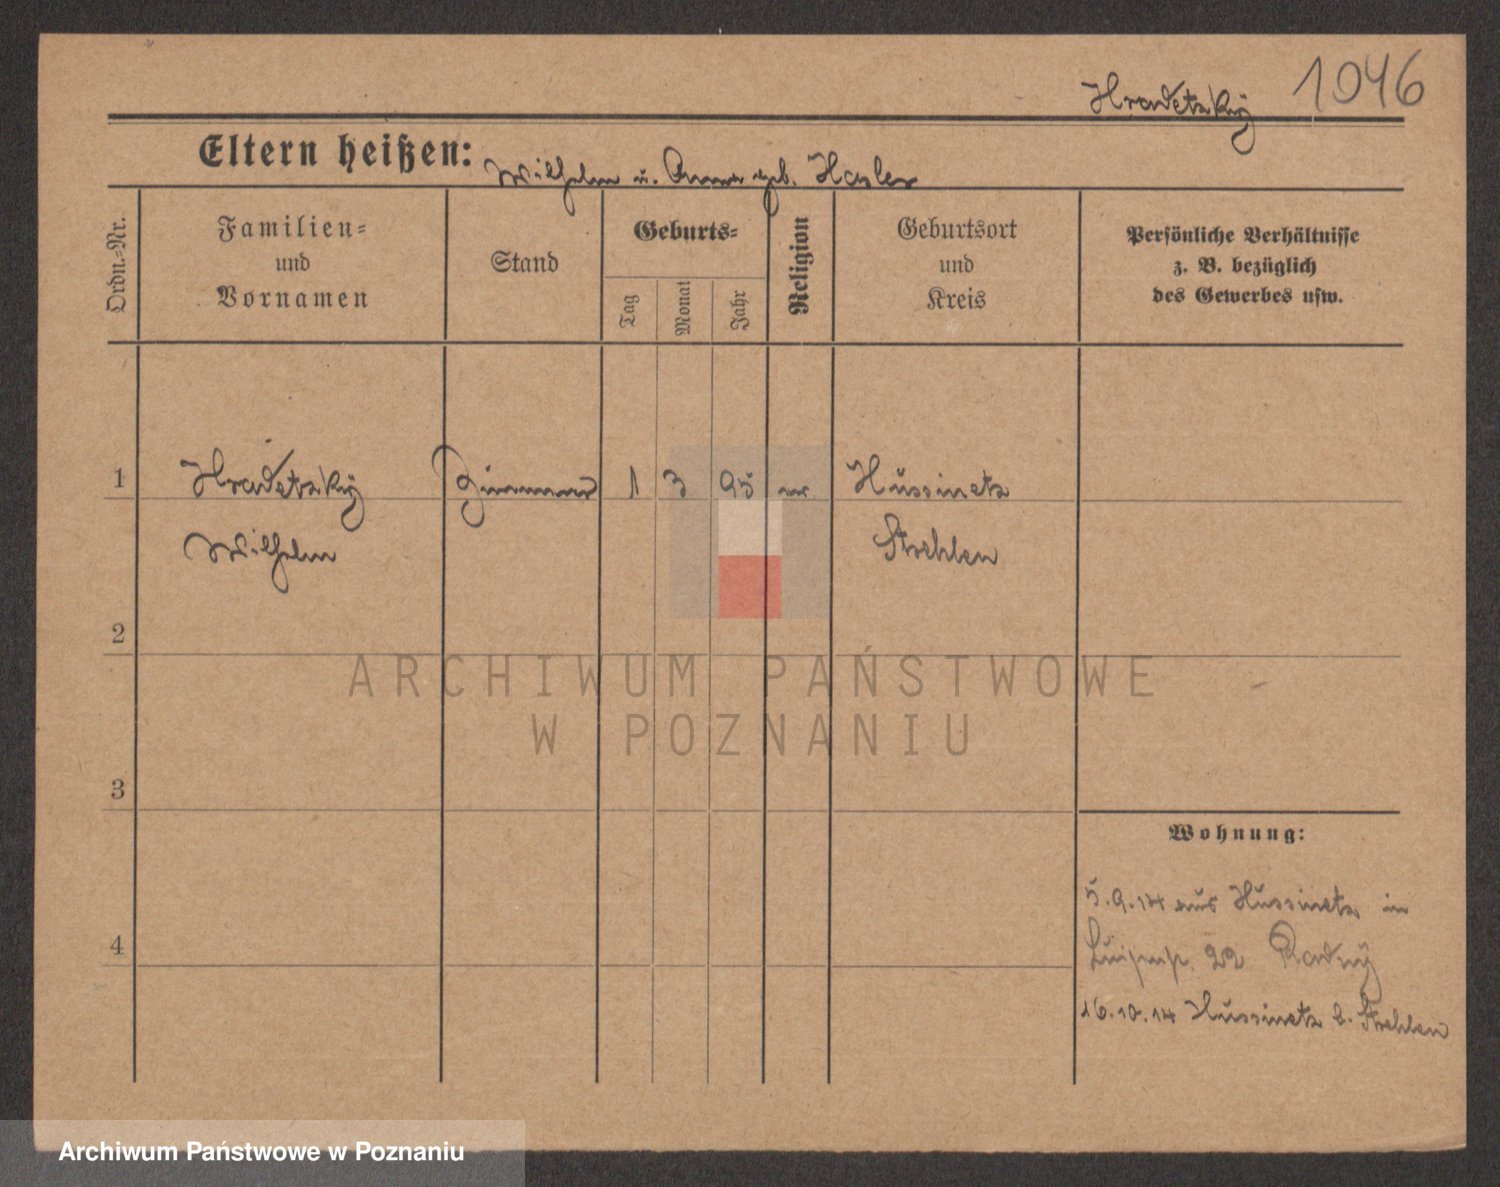 Hradetzky 1046
Eltern heißen: Wilhelm u. Anna geb. Hasler
Ordn.-Nr.
Familien-
und
Vornamen
Stand
Geburts-
Tag
Monat
Jahr
Religion
Geburtsort
und
Kreis
Persönliche Verhältnisse
z. B. bezüglich
des Gewerbes usw.
1 Hradetzky 1 3 95 Hussinetz
Wilhelm Strehlen
2
ARCHIWUM PAŃSTWOWE
W POZNANIU
3
Wohnung:
5.9.14 aus Hussinetz in
4
22
16.10.14 Hussinetz b. Strehlen
Archiwum Państwowe w Poznaniu